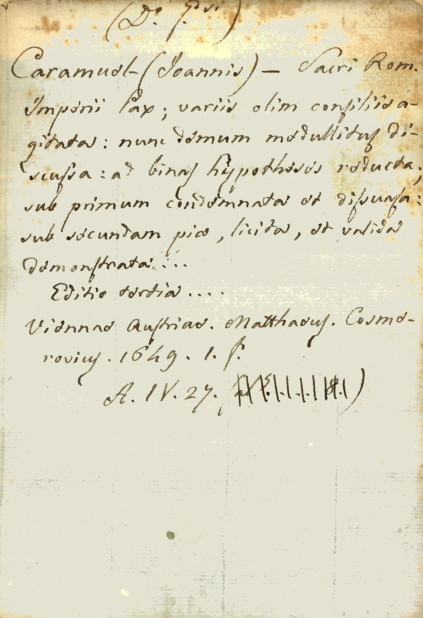 (D. J.si)
Caramuel (Joannis) — Sacri Rom.
Imperii Pax; variis olim consiliis a-
gitata: nunc demum medullitus di-
scussa: ad binas hypotheses reducta;
sub primum condemnata et dissuasa:
sub secundam pie, licita, et valida
demonstrata...
Editio tertia....
Viennae Austriae. Matthaeus. Cosme-
rovius. 1649. 1. f.
A. IV. 27.